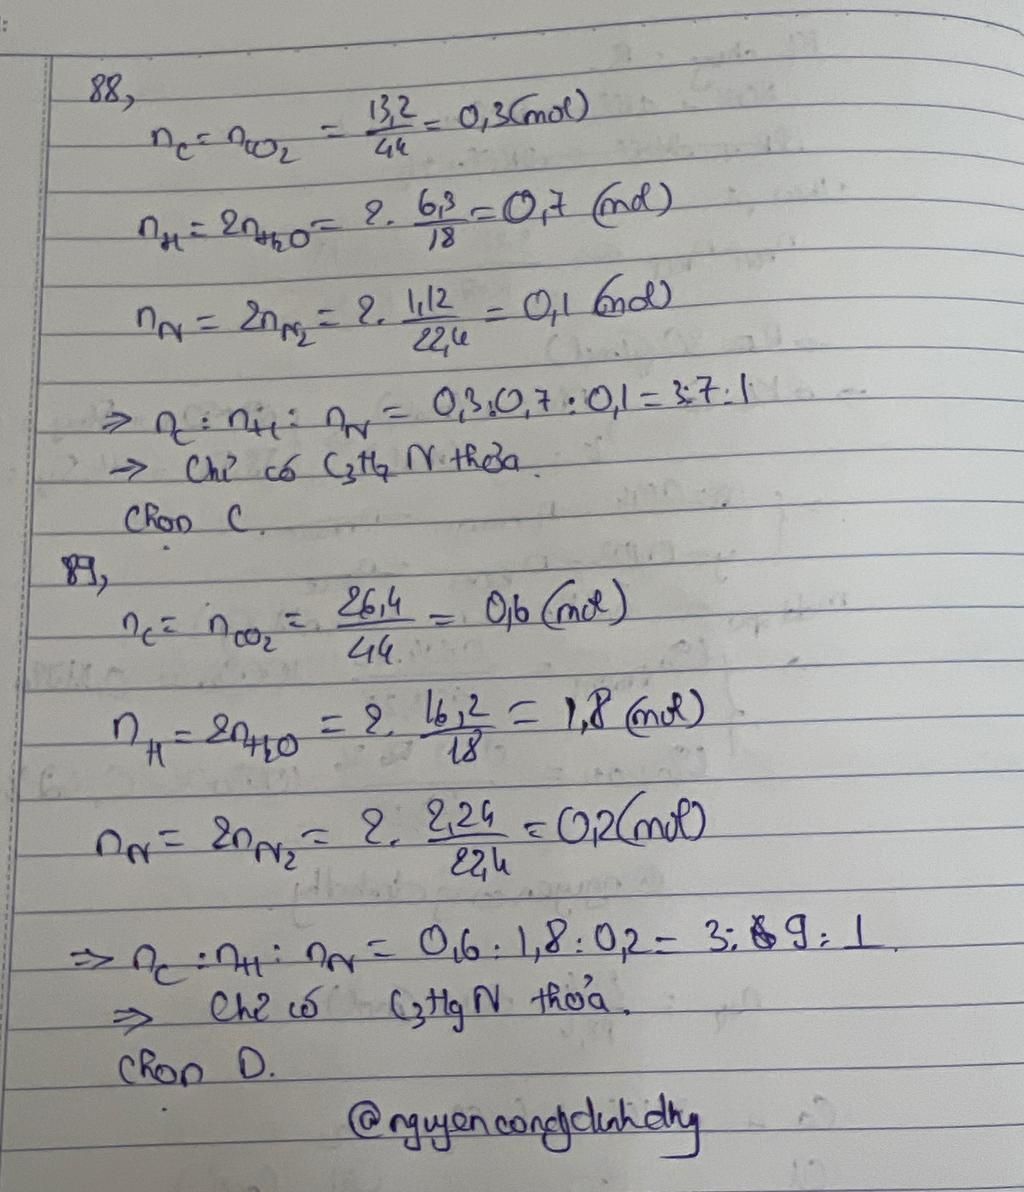 88,
n_C = n_CO2 = 13,2/44 = 0,3 (mol)
n_H = 2n_H2O = 2. 6,3/18 = 0,7 (mol)
n_N = 2n_N2 = 2. 1,12/22,4 = 0,1 (mol)
⇒ n_C : n_H : n_N = 0,3:0,7:0,1 = 3:7:1
→ Chỉ có C3H7N thỏa.
Chọn C.
89,
n_C = n_CO2 = 26,4/44 = 0,6 (mol)
n_H = 2n_H2O = 2. 16,2/18 = 1,8 (mol)
n_N = 2n_N2 = 2. 2,24/22,4 = 0,2 (mol)
⇒ n_C : n_H : n_N = 0,6:1,8:0,2 = 3:9:1.
⇒ Chỉ có C3H9N thỏa.
Chọn D.
@nguyencongdinhdhg